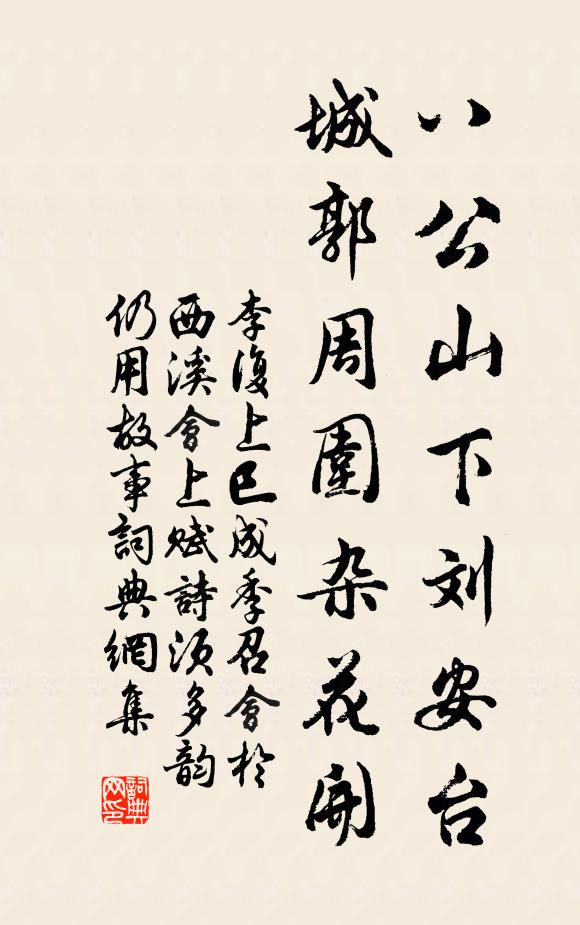 八公山下刘安台
城郭周圍杂花開
李復上巳成季召會於
西溪會上赋詩须多韵
仍用故事詞典網集
詞典网印